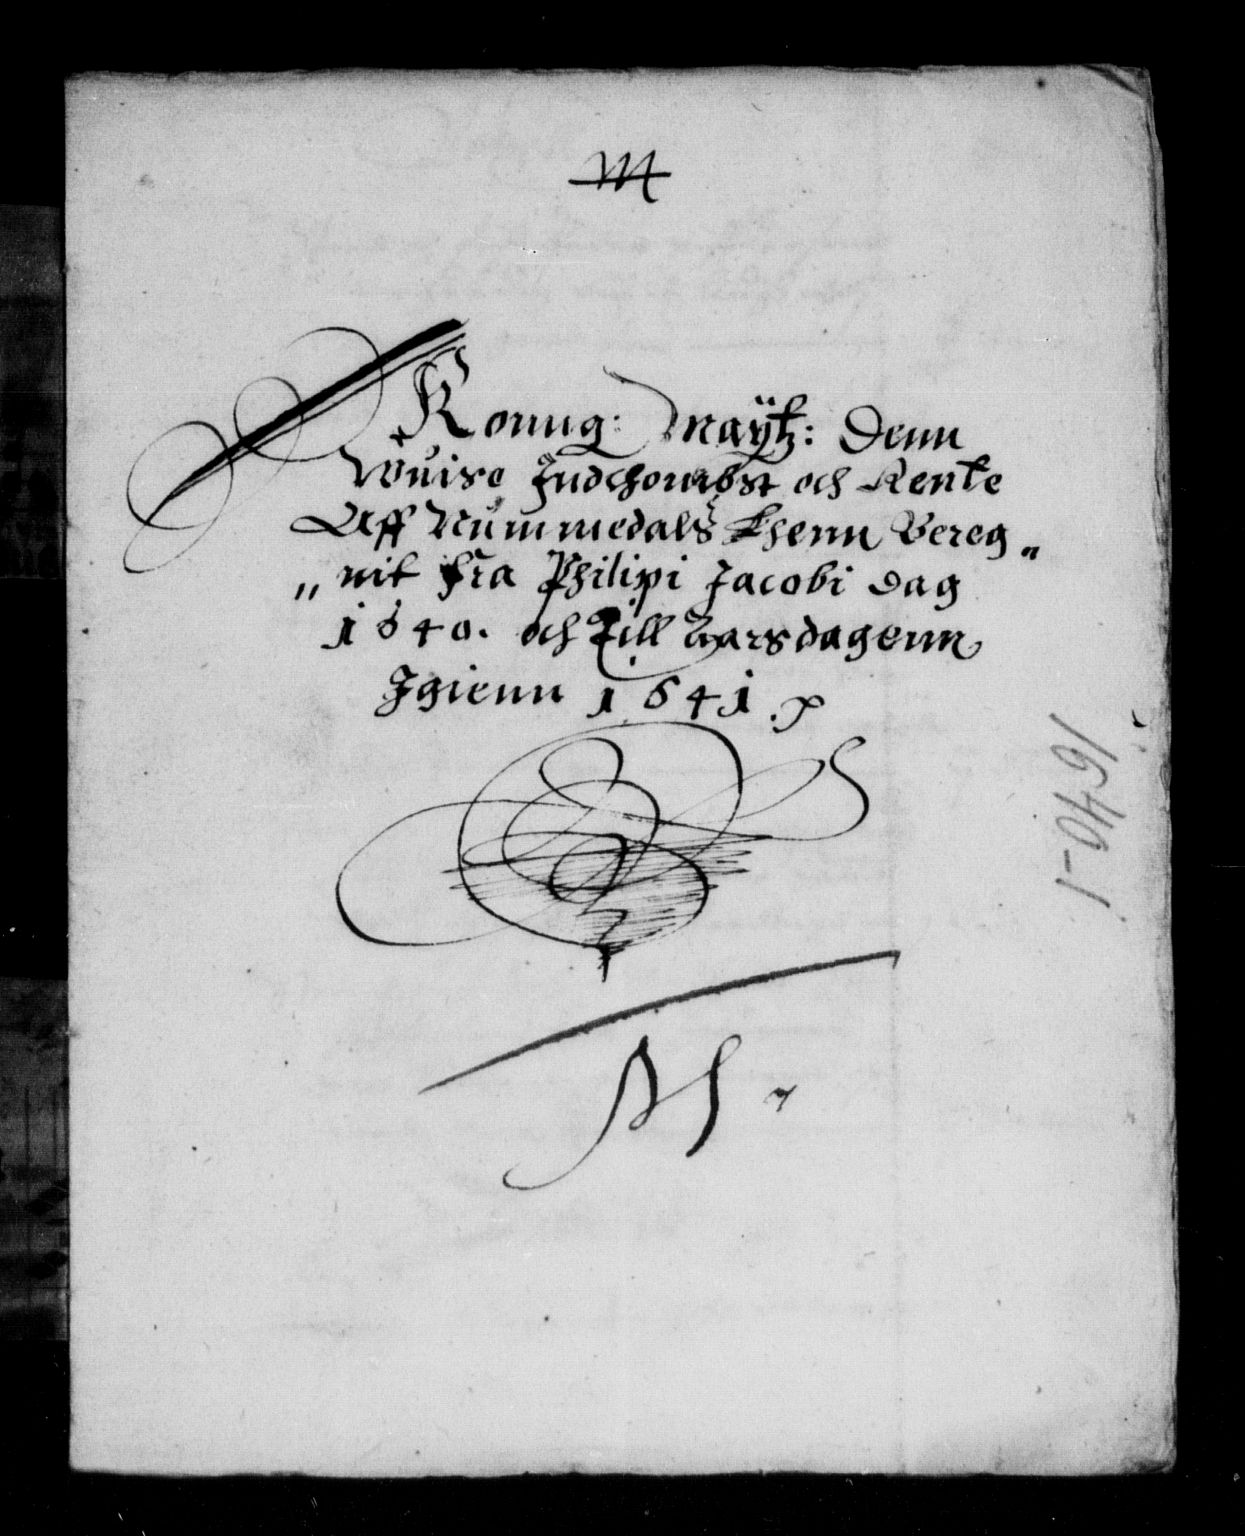 M
Konng: Maÿtz: Denn
Wuise Indchombst och Rente
Aff Nummedals Lhenn Bereg„
„nit fra Philipi Jacobi dag
1640. och Till Aarsdagenn
Igienn 1641.
1640-1